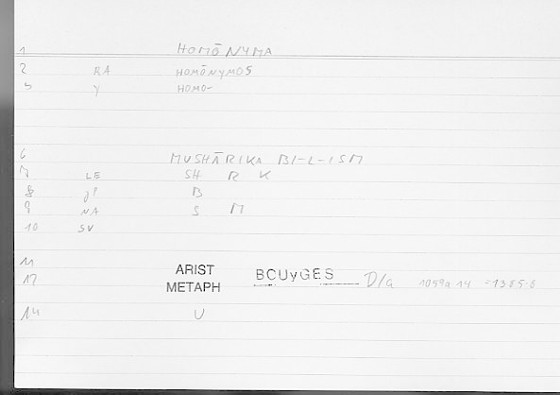 1 HOMŌNYMA
2 RA HOMŌNYMOS
3 y HOMO-
6 MUSHĀRIKA BI-L-ISM
7 LE SH R K
8 B
9 NA S M
10 SV
11
ARIST BOUyGES
METAPH D/a 1059a 14 =1385.8
14 U